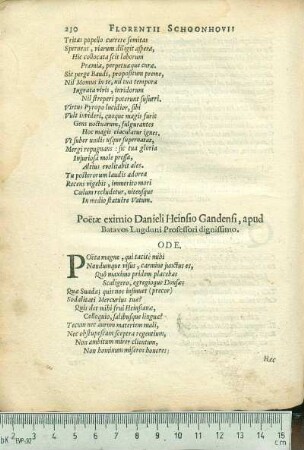 230 FLORENTII SCHOONHOVII
Tritas popello currere semitas
Sperarat, viarum diligit aspera,
Hic collocata scit laborum
Præmia, perpetuæque curæ.
Sic perge Baudi, propositum preme,
Nil Momus in te, nil tua tempora
Ingrata viris, invidorum
Nil stroperi poterunt susurri.
Virtus Pyropo lucidior, sibi
Vult invideri, cæcaque magis furit
Gens nocturnum, fulgurantes
Hoc magis eiaculatur ignes.
Vt suber undis usque supernatat,
Mergi repugnans: sic tua gloria
Iniuriosa mole pressa,
Altius evolitabit ales.
Tu posterorum laudis adorea
Recens vigebit, immeritò mari
Cælum recludetur, vicensque
In medio statuere Vatum.
Poëtæ eximio Danieli Heinsio Gandensi, apud
Batavos Lugduni Professori dignissimo.
ODE.
POëta magne, qui tacitè mihi
Nondumque visus, carmine junctus es,
Quò maximo pridem placebas
Scaligero, egregioque Dousæ
Quæ Suada; quis nos insinuet (precor)
Sodalitati Mercurius tuæ?
Quis det mihi frui Heinsiana,
Colloquio, salibusque linguæ?
Tecum nec aurum materiem mali,
Nec obstupescam sceptra regentium,
Non ambitum mirer clientum,
Non hominum miseros honores:
Nec
bK²BR·XC³ 1 2 3 4 5 6 7 8 9 10 11 12 13 14 15 cm